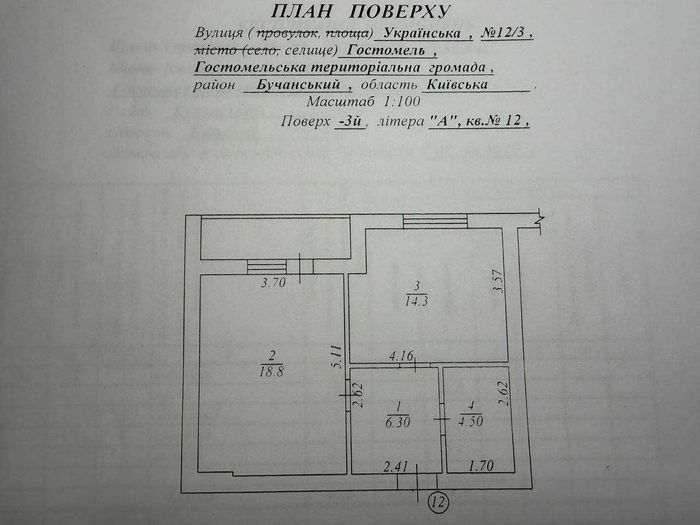 ПЛАН ПОВЕРХУ
Вулиця ( провулок, площа) Українська , №12/3 ,
місто (село, селище) Гостомель ,
Гостомельська територіальна громада ,
район Бучанський , область Київська .
Масштаб 1:100
Поверх -3й , літера "А", кв.№ 12 ,
3.70
3
14.3
3.57
2
18.8
5.11
4.16
2.62
1
6.30
4
4.50
2.62
2.41
1.70
12